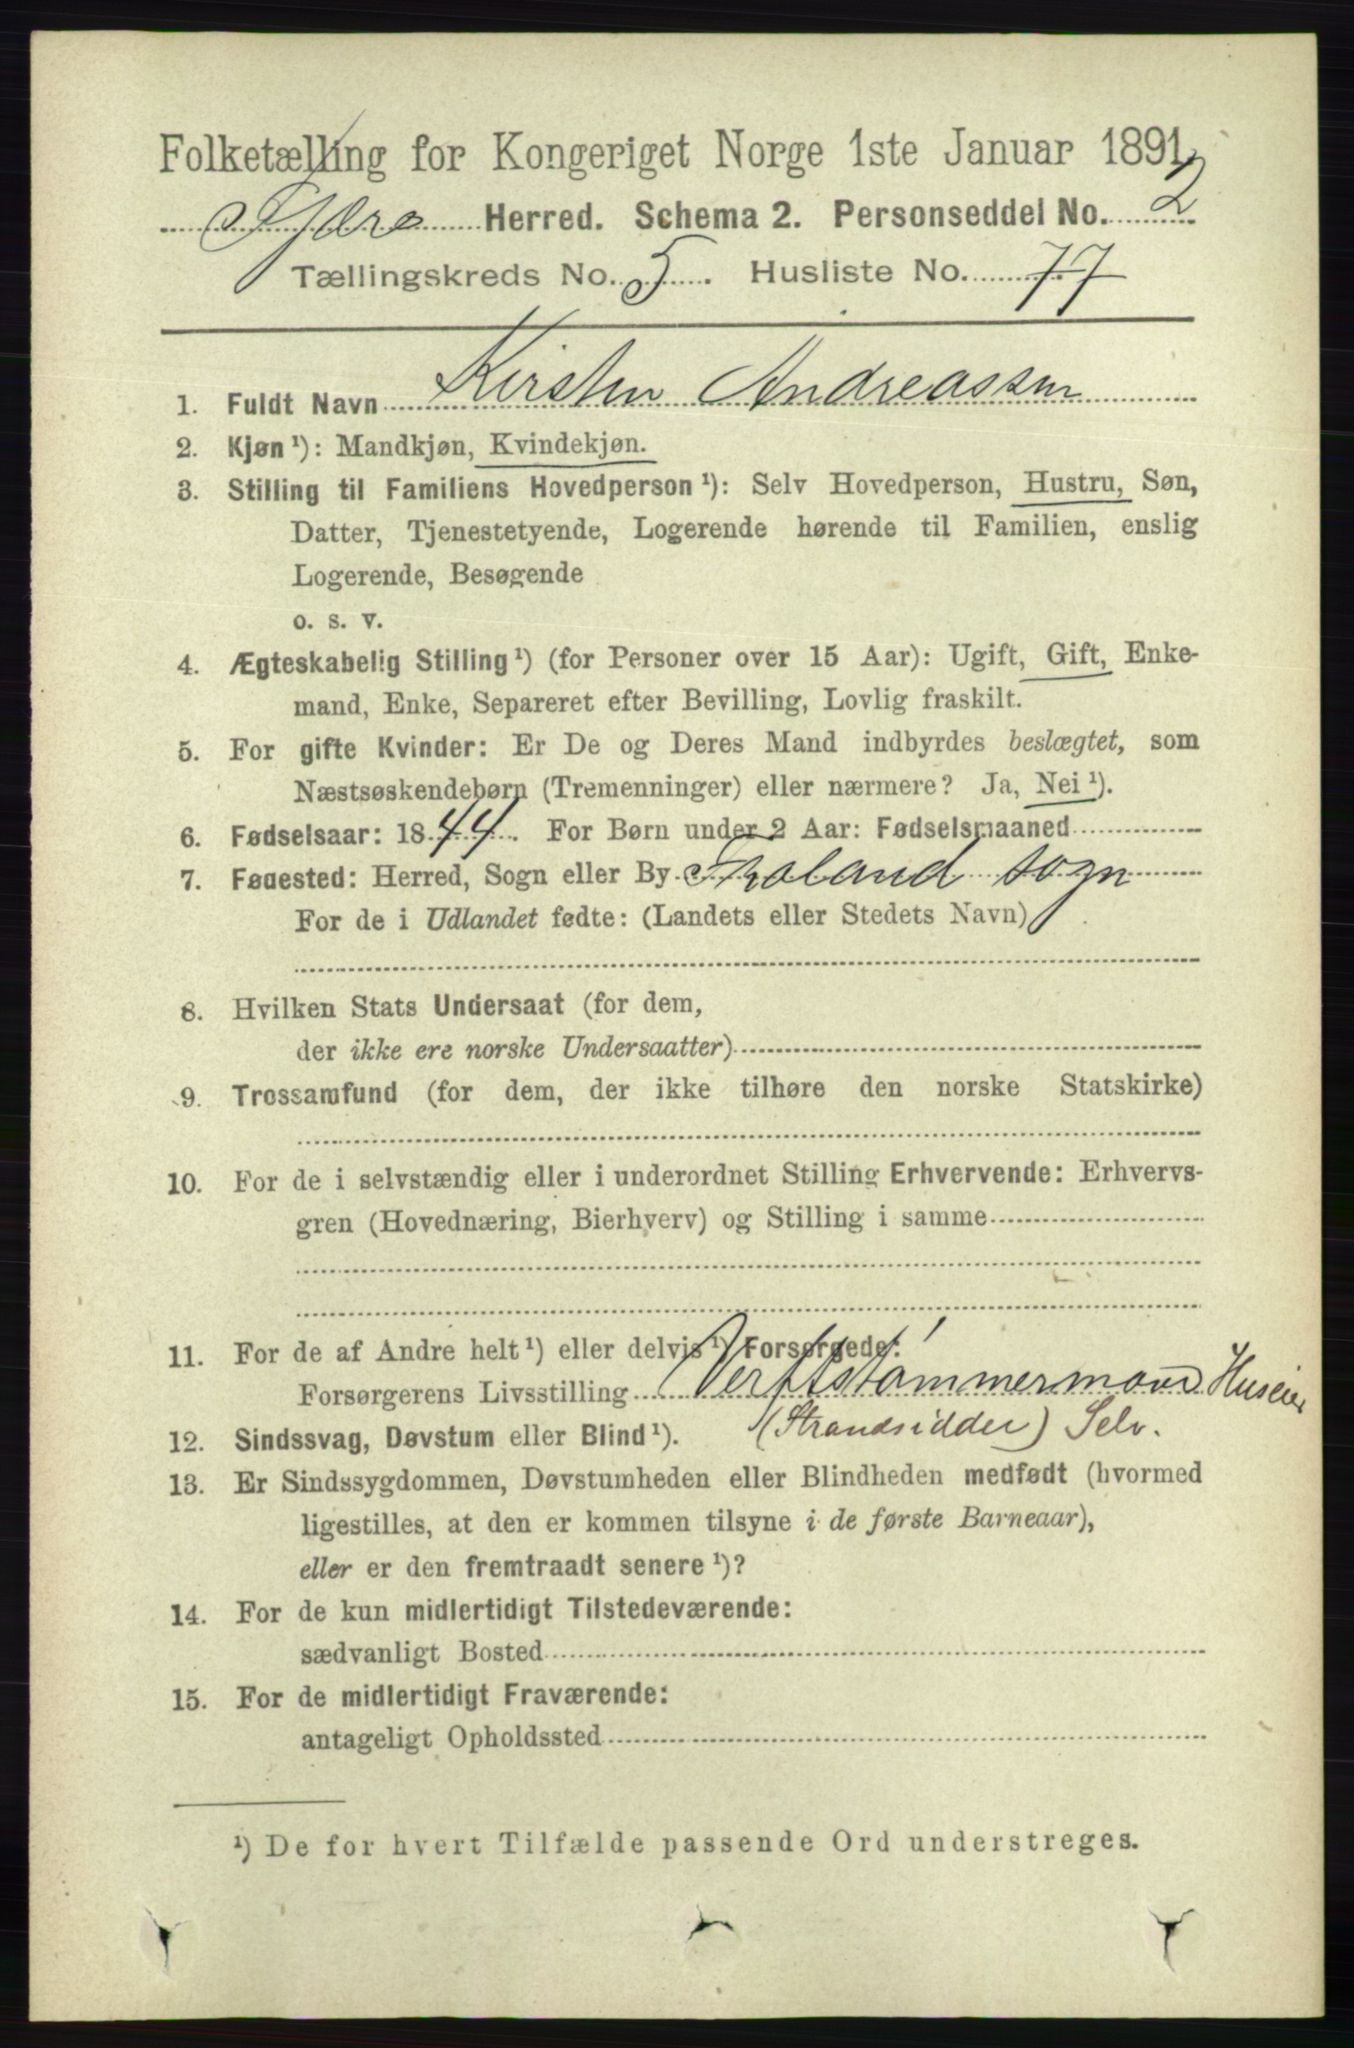 Folketælling for Kongeriget Norge 1ste Januar 1891.
Gjære Herred. Schema 2. Personseddel No. 2
Tællingskreds No. 5. Husliste No. 77
1. Fuldt Navn Kirsten Andreassen
2. Kjøn ¹): Mandkjøn, Kvindekjøn.
3. Stilling til Familiens Hovedperson ¹): Selv Hovedperson, Hustru, Søn,
Datter, Tjenestetyende, Logerende hørende til Familien, enslig
Logerende, Besøgende
o. s. v.
4. Ægteskabelig Stilling ¹) (for Personer over 15 Aar): Ugift, Gift, Enke-
mand, Enke, Separeret efter Bevilling, Lovlig fraskilt.
5. For gifte Kvinder: Er De og Deres Mand indbyrdes beslægtet, som
Næstsøskendebørn (Tremenninger) eller nærmere? Ja, Nei ¹).
6. Fødselsaar: 1844. For Børn under 2 Aar: Fødselsmaaned
7. Fødested: Herred, Sogn eller By Froland sogn
For de i Udlandet fødte: (Landets eller Stedets Navn)
8. Hvilken Stats Undersaat (for dem,
der ikke ere norske Undersaatter)
9. Trossamfund (for dem, der ikke tilhøre den norske Statskirke)
10. For de i selvstændig eller i underordnet Stilling Erhvervende: Erhvervs-
gren (Hovednæring, Bierhverv) og Stilling i samme
11. For de af Andre helt ¹) eller delvis ¹) Forsørgede:
Forsørgerens Livsstilling Verftstømmermand Huseier
(Strandsidder) Selv.
12. Sindssvag, Døvstum eller Blind ¹).
13. Er Sindssygdommen, Døvstumheden eller Blindheden medfødt (hvormed
ligestilles, at den er kommen tilsyne i de første Barneaar),
eller er den fremtraadt senere ¹)?
14. For de kun midlertidigt Tilstedeværende:
sædvanligt Bosted
15. For de midlertidigt Fraværende:
antageligt Opholdssted
¹) De for hvert Tilfælde passende Ord understreges.